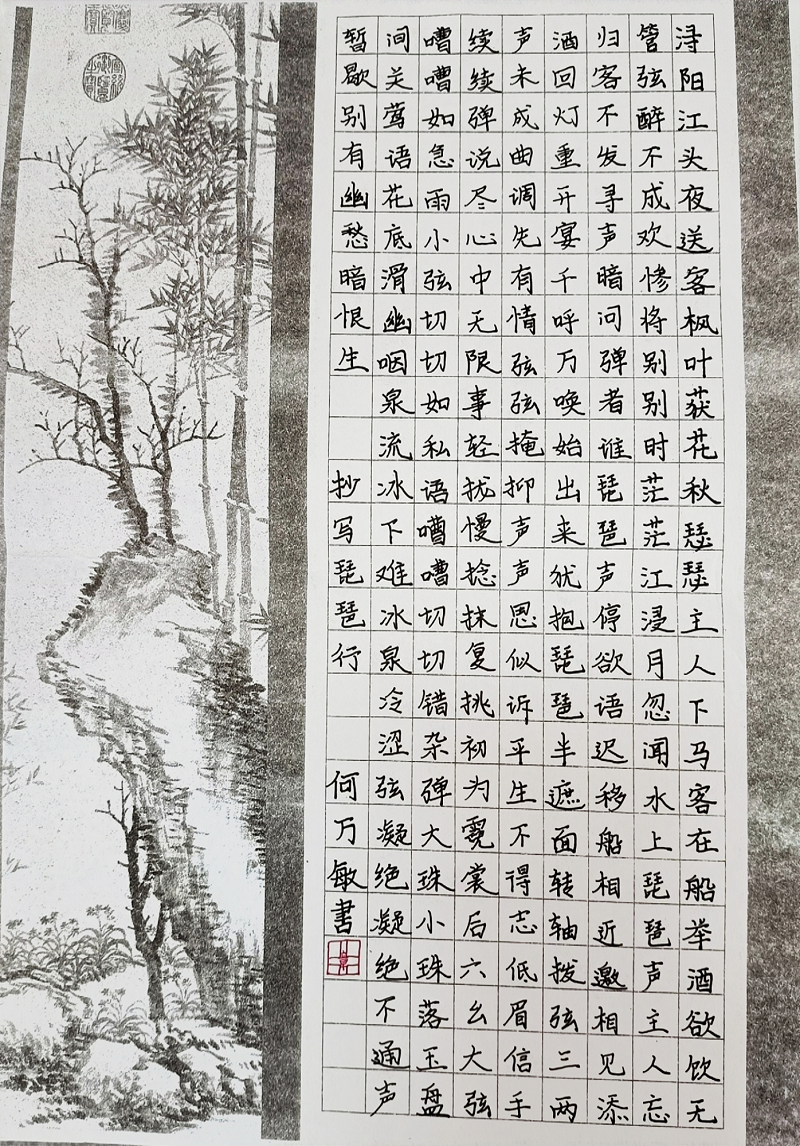 浔阳江头夜送客枫叶荻花秋瑟瑟主人下马客在船举酒欲饮无
管弦醉不成欢惨将别别时茫茫江浸月忽闻水上琵琶声主人忘
归客不发寻声暗问弹者谁琵琶声停欲语迟移船相近邀相见添
酒回灯重开宴千呼万唤始出来犹抱琵琶半遮面转轴拨弦三两
声未成曲调先有情弦弦掩抑声声思似诉平生不得志低眉信手
续续弹说尽心中无限事轻拢慢捻抹复挑初为霓裳后六幺大弦
嘈嘈如急雨小弦切切如私语嘈嘈切切错杂弹大珠小珠落玉盘
间关莺语花底滑幽咽泉流冰下难冰泉冷涩弦凝绝凝绝不通声
暂歇别有幽愁暗恨生 抄写琵琶行 何万敏書